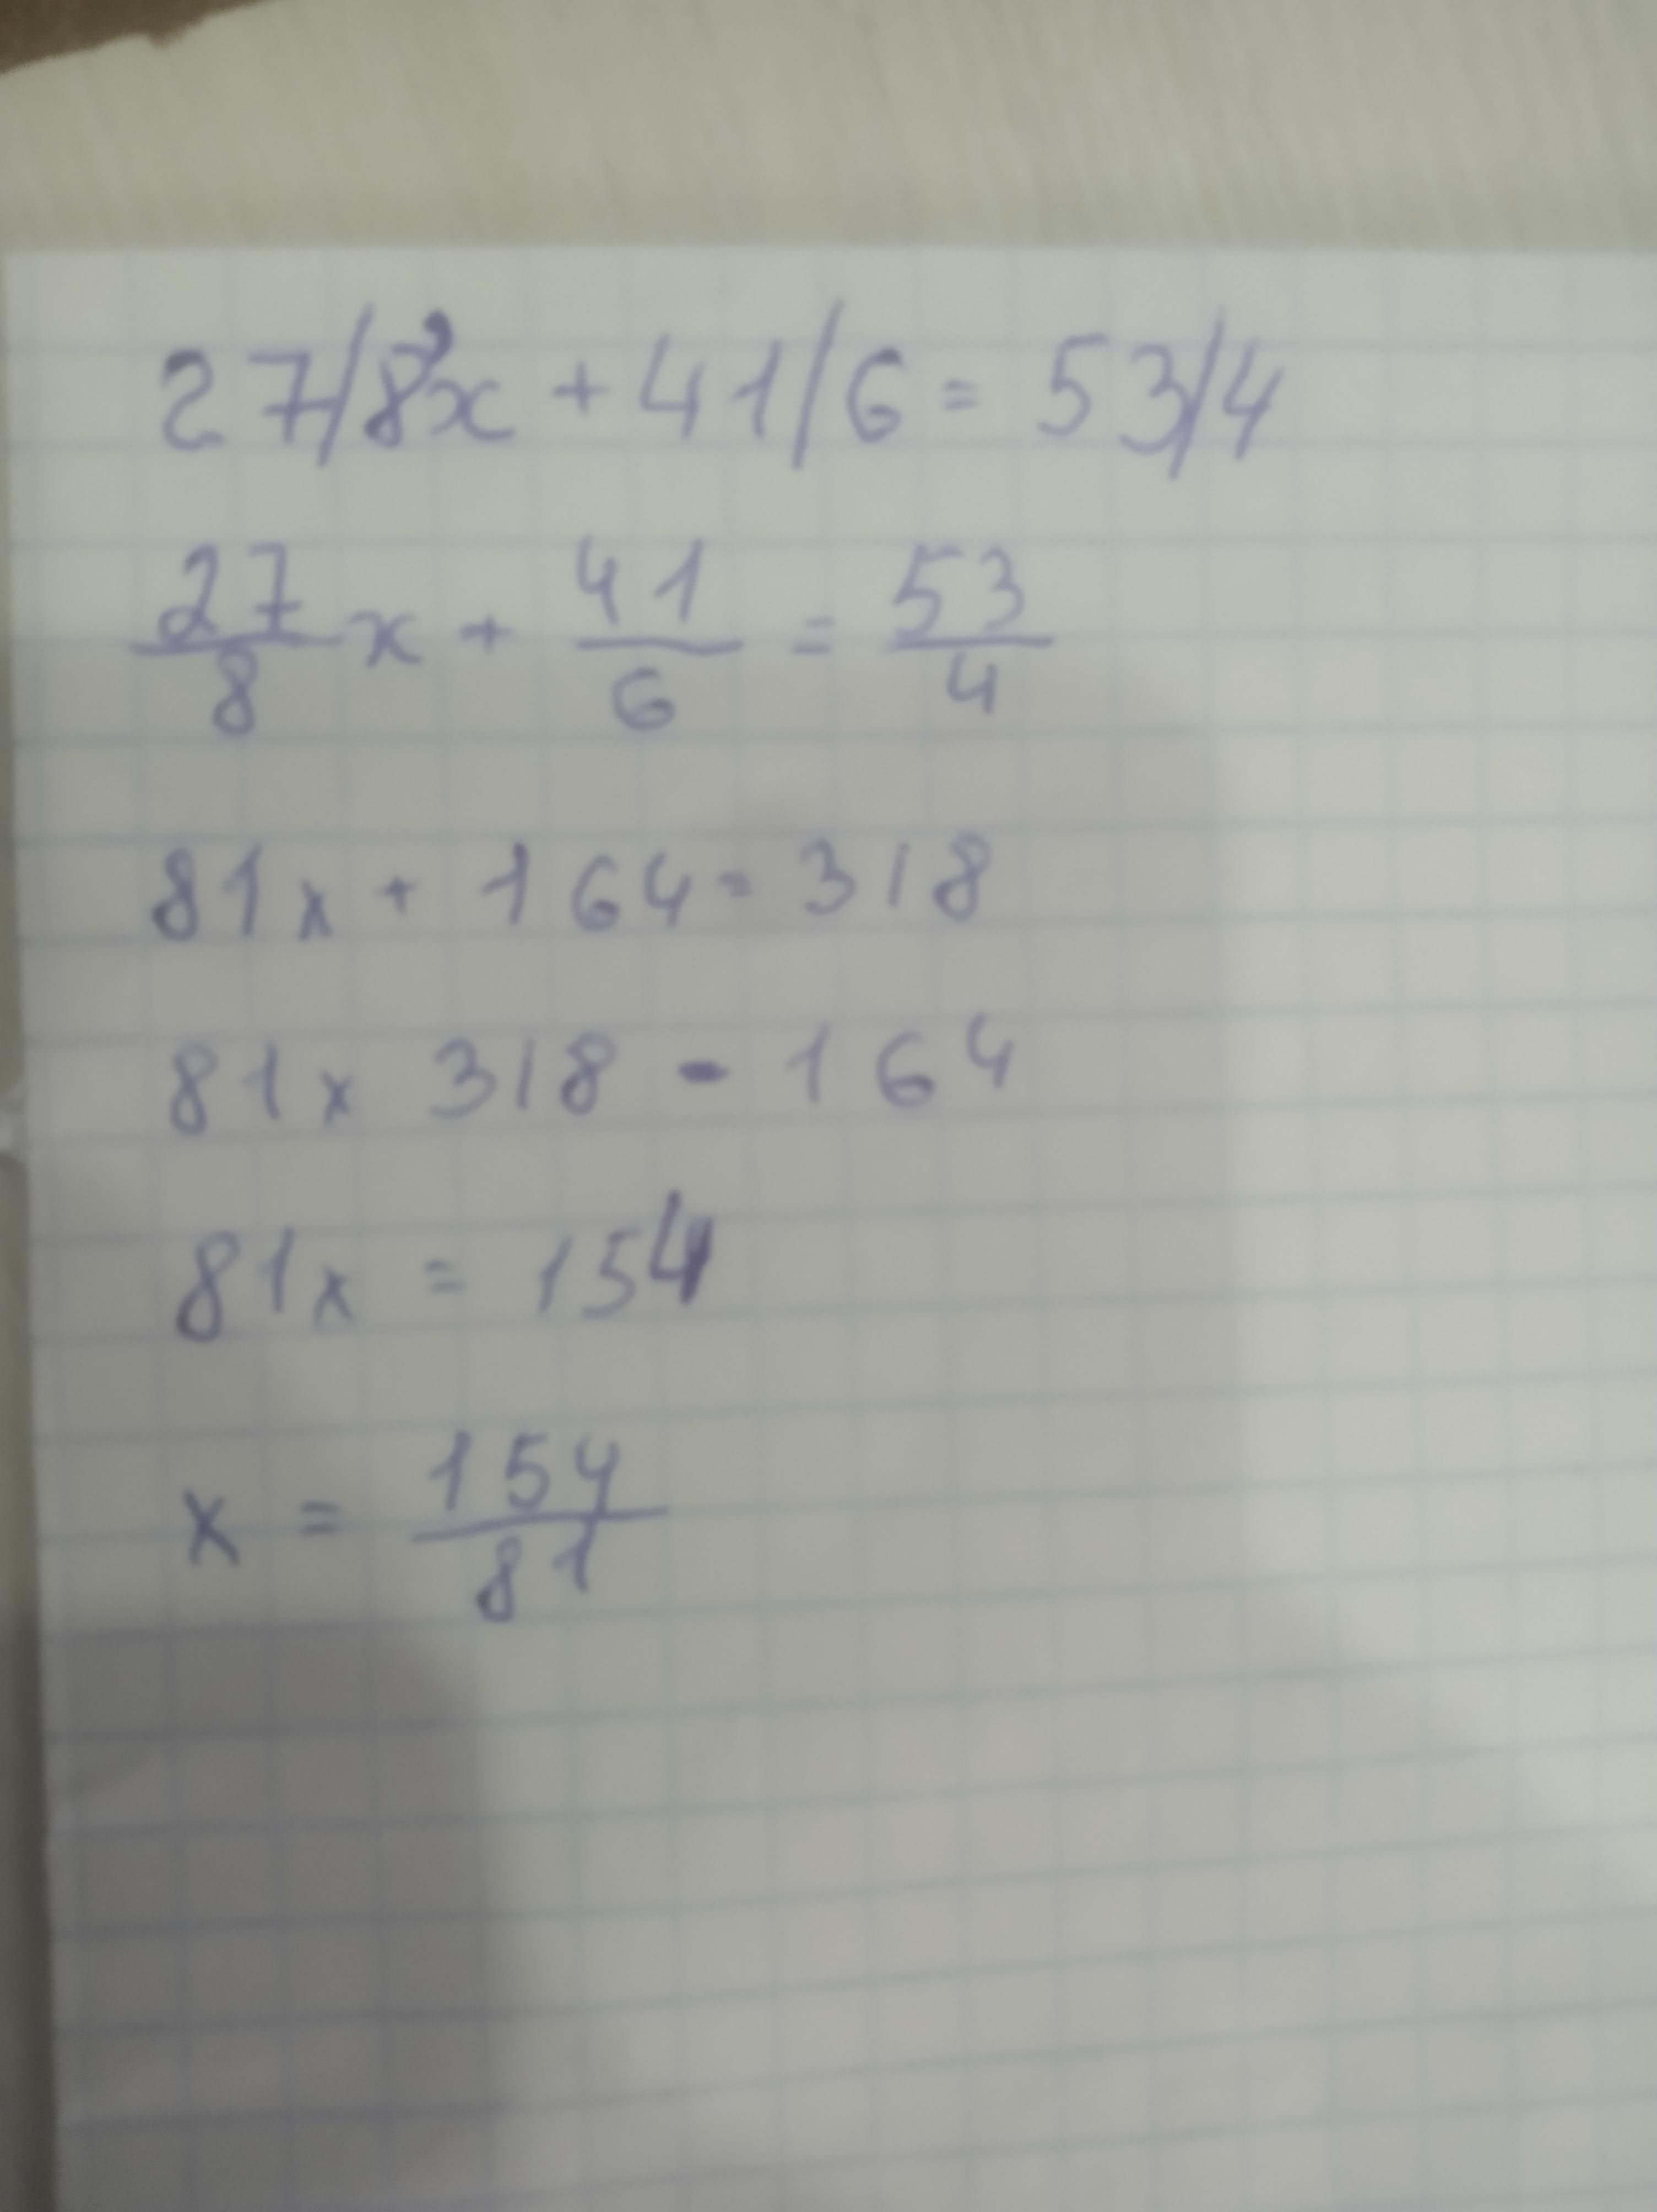 27/8x + 41/6 = 53/4
27/8 x + 41/6 = 53/4
81x + 164 = 318
81x 318 - 164
81x = 154
x = 154/81